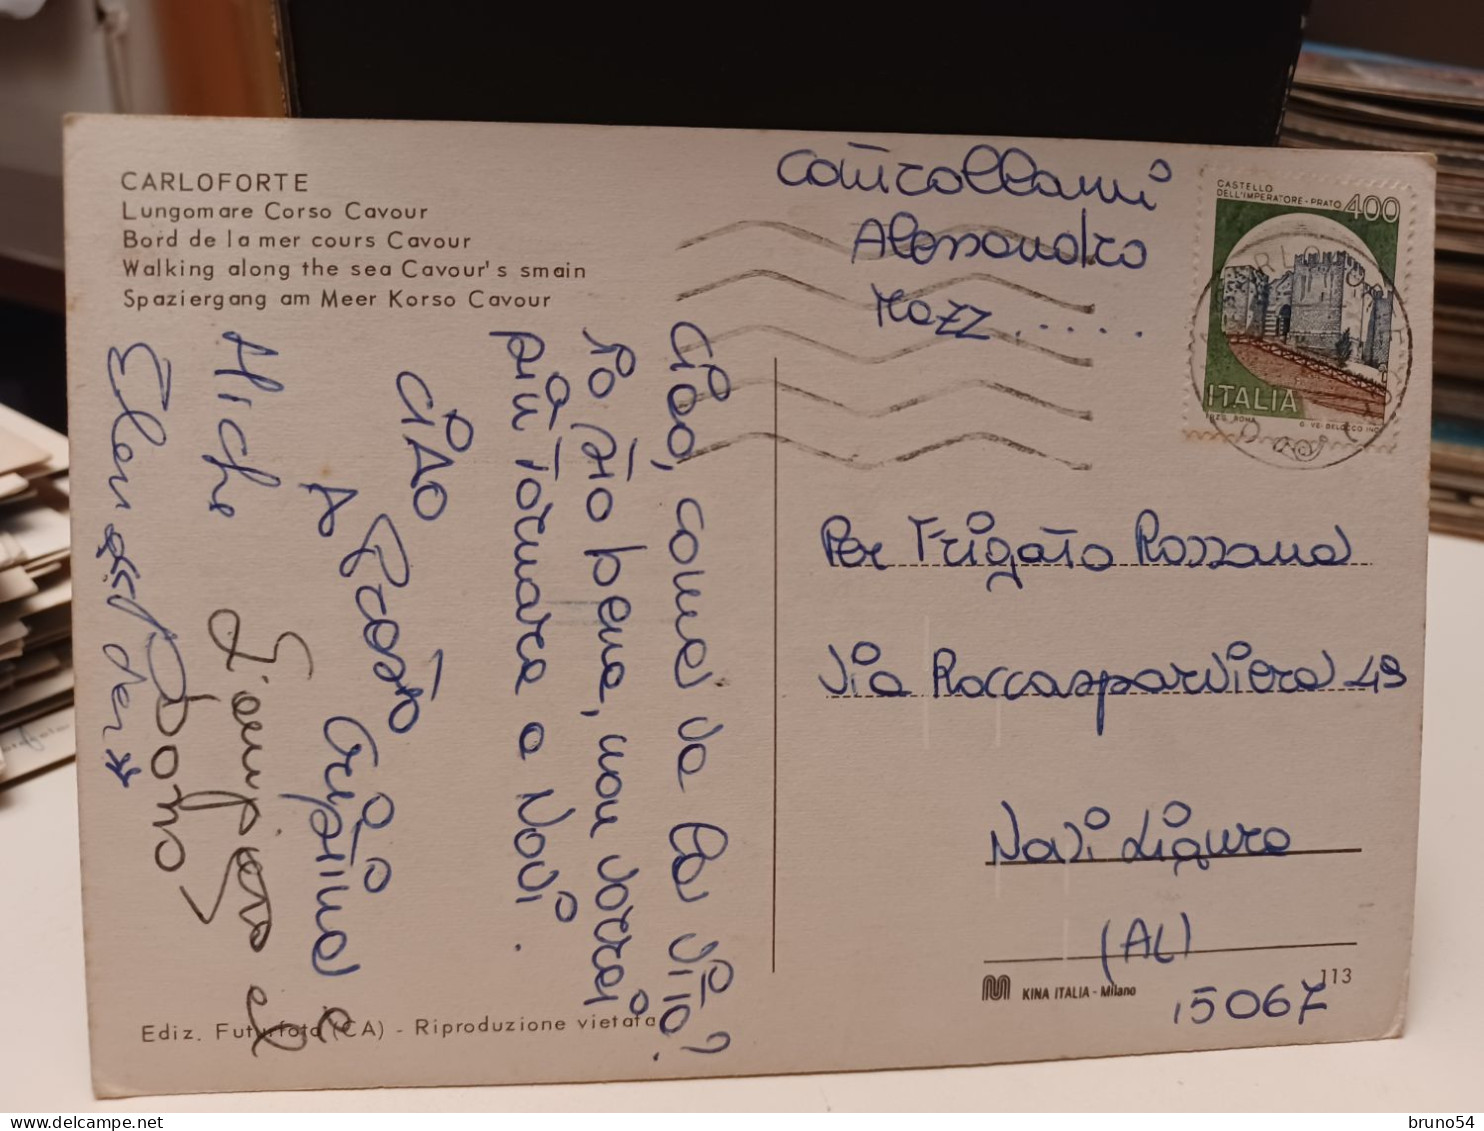 CARLOFORTE
Lungomare Corso Cavour
Bord de la mer cours Cavour
Walking along the sea Cavour's smain
Spaziergang am Meer Korso Cavour
Alessandro
Mazz.....
CASTELLO
DELL'IMPERATORE - PRATO 400
ITALIA
Ciao, come va la vita?
Io sto bene, non vorrei
più tornare a Novi.
CIAO
A Presto
Cristina e
Per Frigato Rossana
Via Roccasparviera 49
Novi Ligure
(AL)
15067
KINA ITALIA - Milano
113
Ediz. Futurfoto (CA) - Riproduzione vietata
bruno54